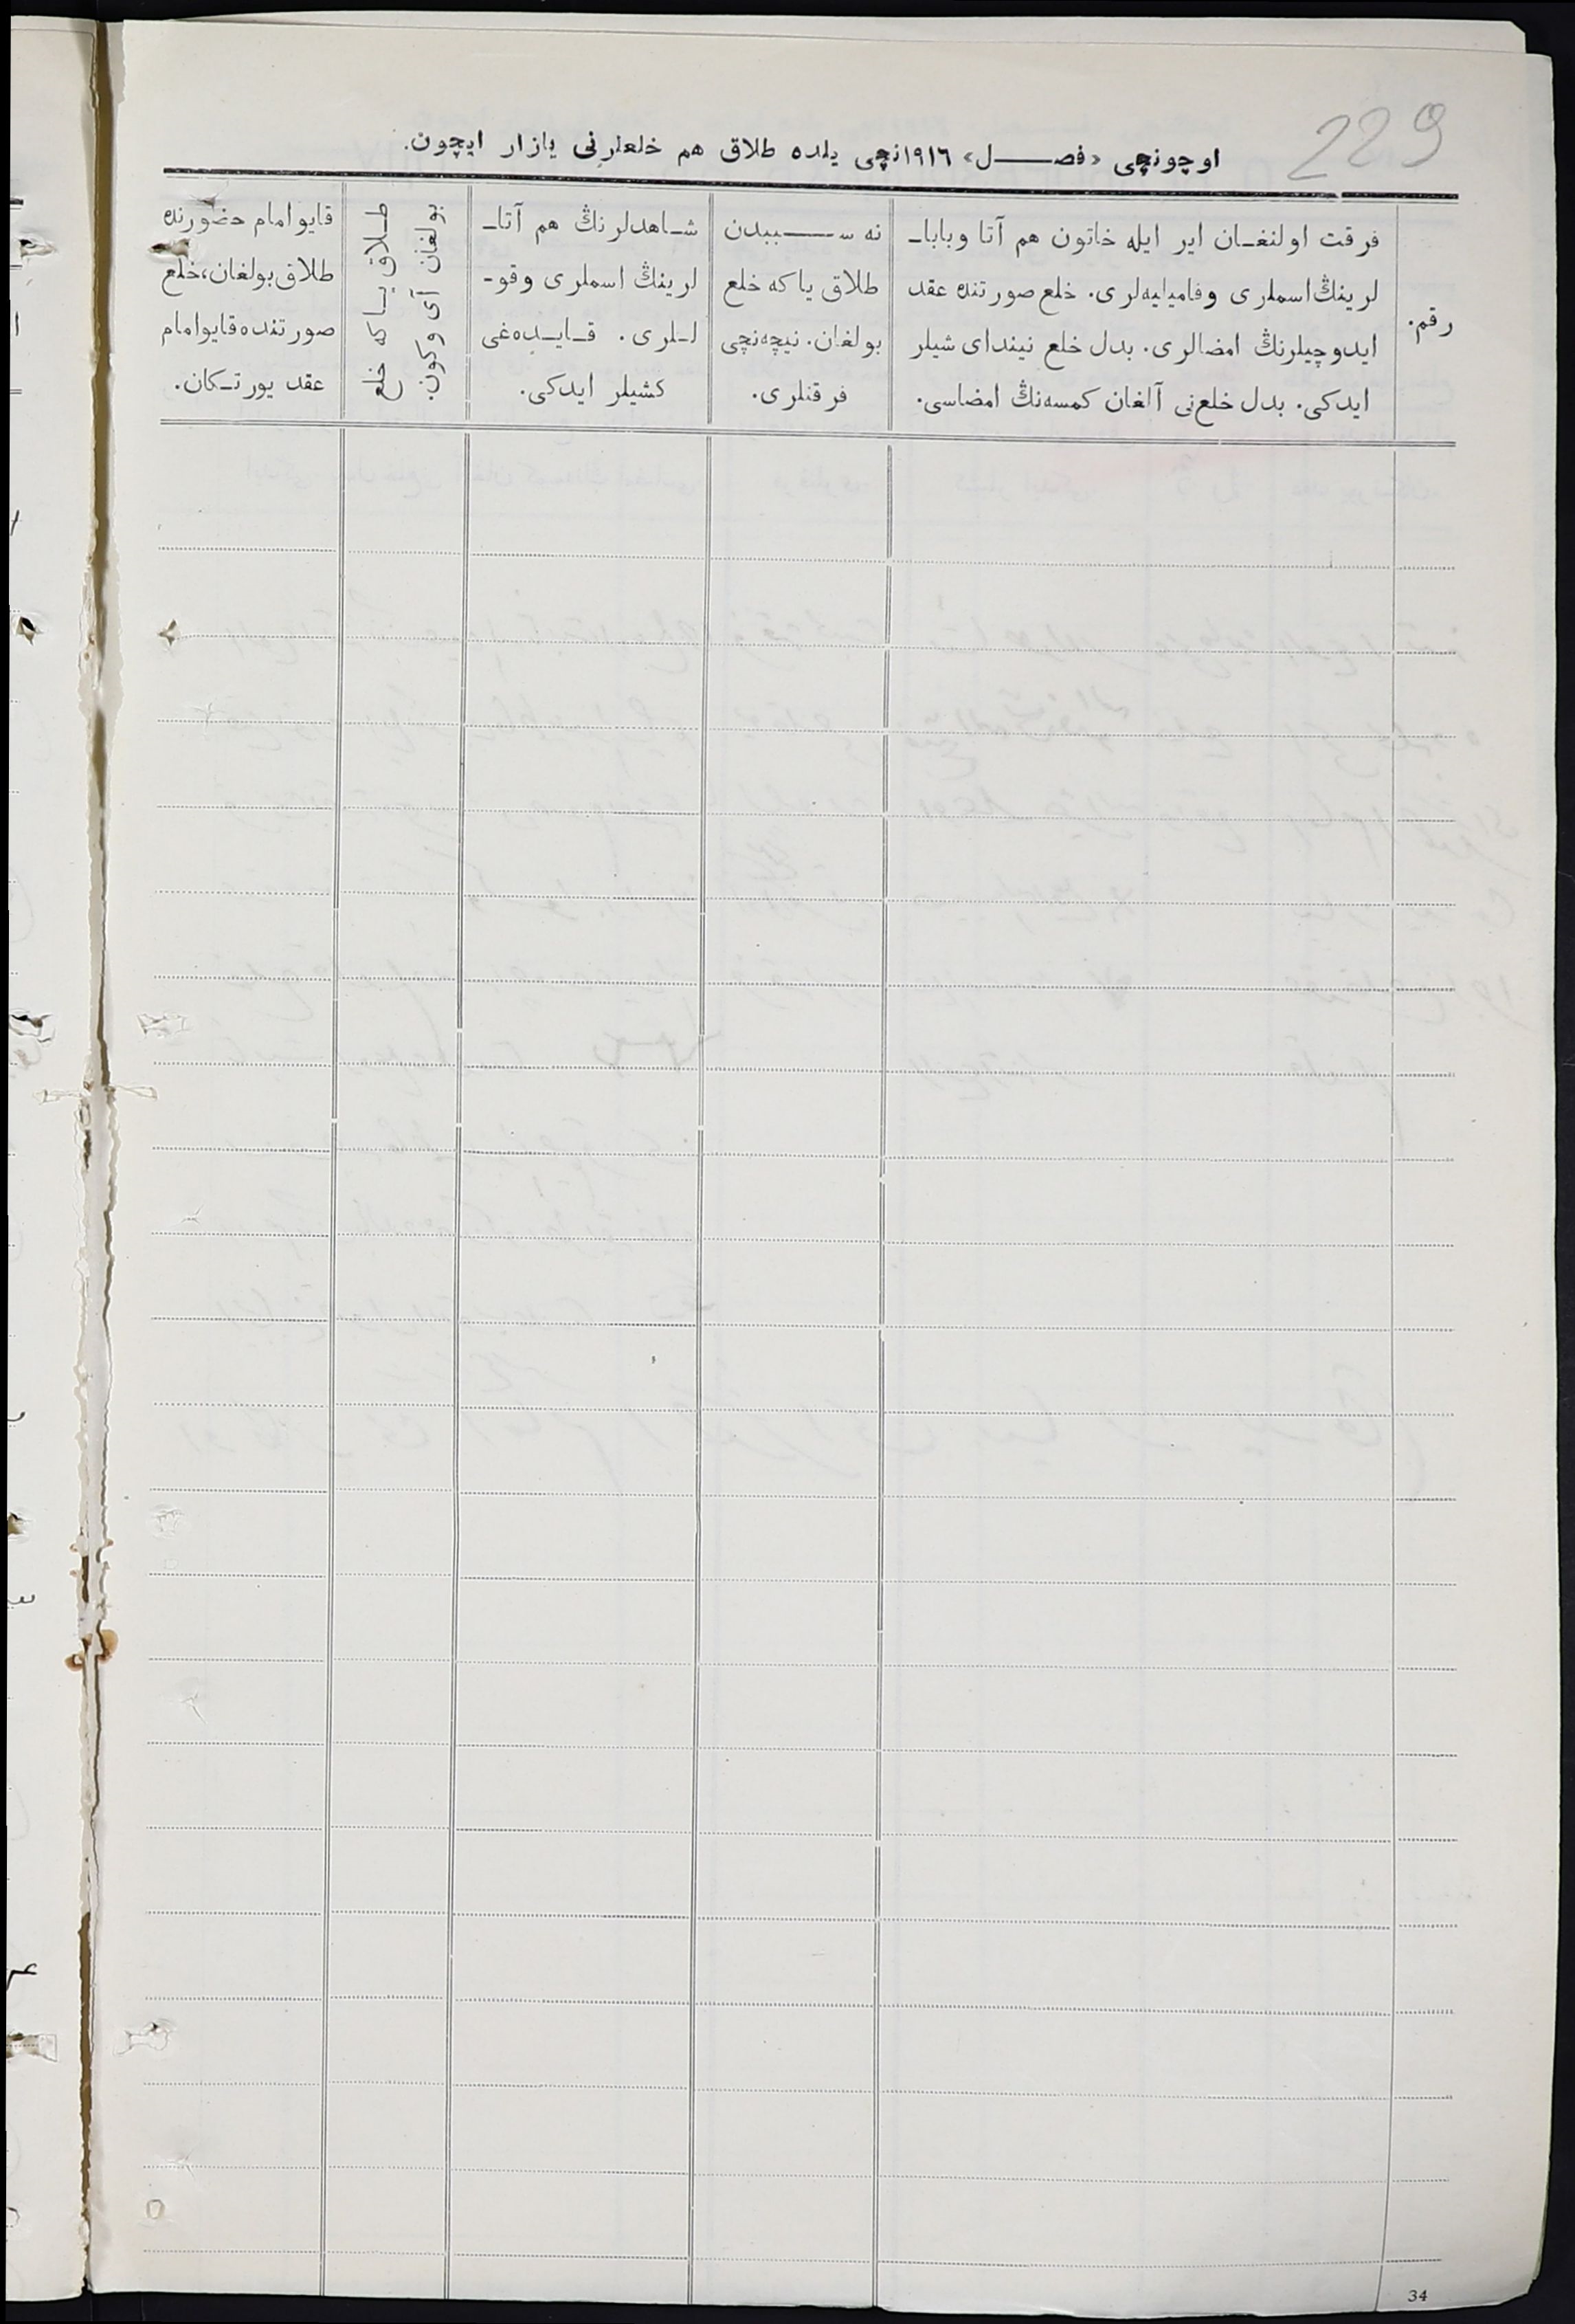 229
اوچونچی «فصل» ١٩١٦نچی يلده طلاق هم خلعلرنی يازار ايچون.
رقم.
فرقت اولنغان اير ايله خاتون هم آتا وبابا-
لرينڭ اسملری وفاميليه‌لری. خلع صورتنده عقد
ايدوچيلرنڭ امضالری. بدل خلع نيندای شيلر
ايدكی. بدل خلع‌نی آلغان كمسه‌نڭ امضاسی.
نه سببدن
طلاق ياكه خلع
بولغان. نيچه‌نچی
فرقتلری.
شاهدلرنڭ هم آتا-
لرينڭ اسملری وقو-
للری. قايده‌غی
كشيلر ايدكی.
طلاق ياكه خلع
بولغان آی وكون.
قايو امام حضورنده
طلاق بولغان، خلع
صورتنده قايو امام
عقد يورتكان.
34